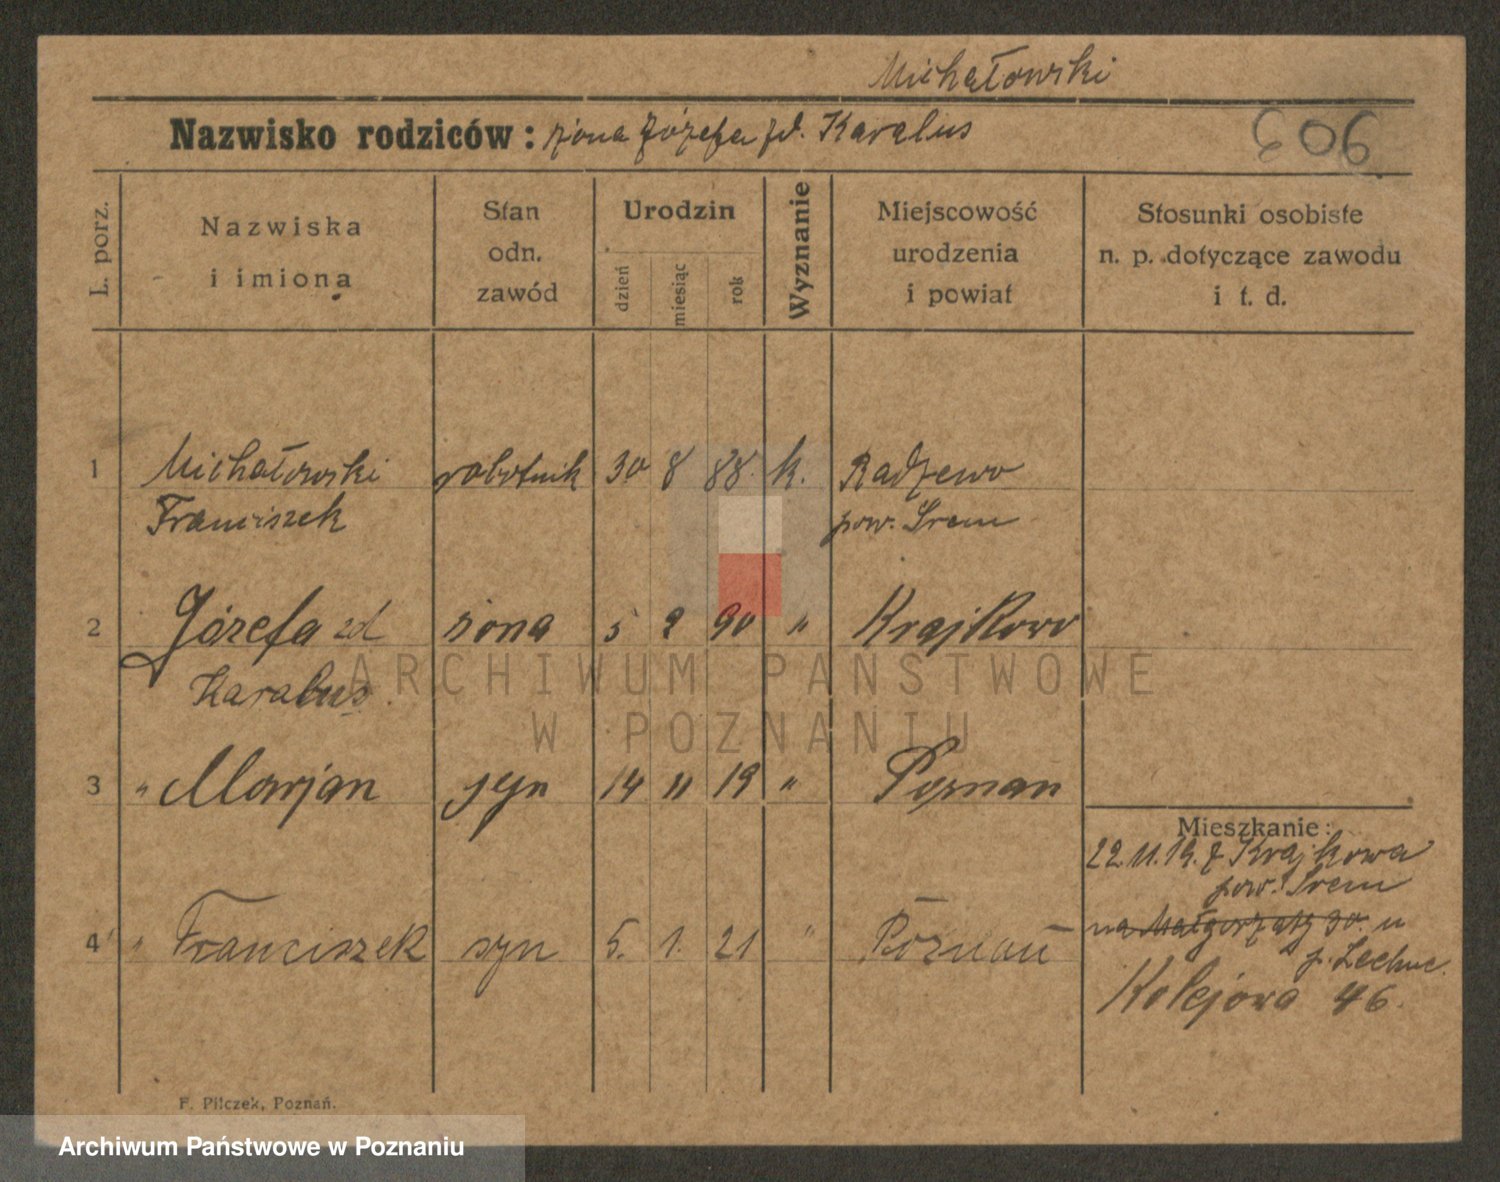 Michałowski
Nazwisko rodziców: żona Józefa zd. Karalus
906
L. porz.
Nazwiska
i imiona
Stan
odn.
zawód
Urodzin
dzień
miesiąc
rok
Wyznanie
Miejscowość
urodzenia
i powiat
Stosunki osobiste
n. p. dotyczące zawodu
i t. d.
1 Michałowski robotnik 30 8 88. k. Radzewo
Franciszek pow. Śrem
2 Józefa zd żona 5 2 90 " Krajkowo
Karalus
3 " Marjan syn 14 11 19 " Poznań
Mieszkanie:
22.11.19. z Krajkowa
pow. Śrem
na Małgorzaty 30. u
p. Lechne.
4 " Franciszek syn 5. 1. 21 " Poznań
Kolejowa 46.
F. Pilczek, Poznań.
ARCHIWUM PAŃSTWOWE
W POZNANIU
Archiwum Państwowe w Poznaniu